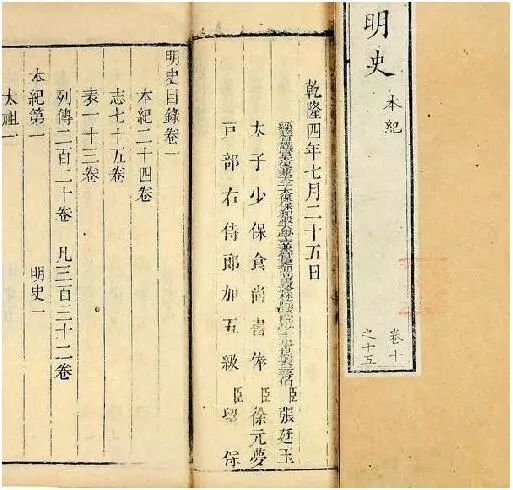 明史
本紀
卷十
之十五
乾隆四年七月二十五日
臣張廷玉
太子少保食尚書俸臣徐元夢
戸部右侍郎加五級臣留保
明史目錄卷一
本紀二十四卷
志七十五卷
表一十三卷
列傳二百二十卷 凡三百三十二卷
本紀第一 明史一
太祖一